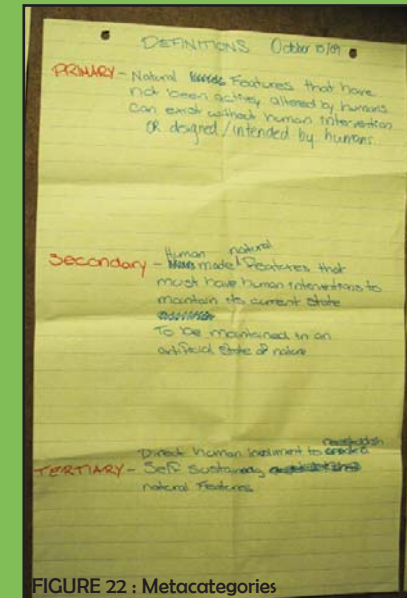 DEFINITIONS October 10/09
PRIMARY - Natural Features that have
not been actively altered by humans
can exist without human intervention
OR designed/intended by humans.
Human natural
Secondary - made Features that
must have human interventions to
maintain its current state
To be maintained in an
artificial state of nature
reestablish
Direct human involment to
TERTIARY - Self sustaining
natural Features
FIGURE 22 : Metacategories